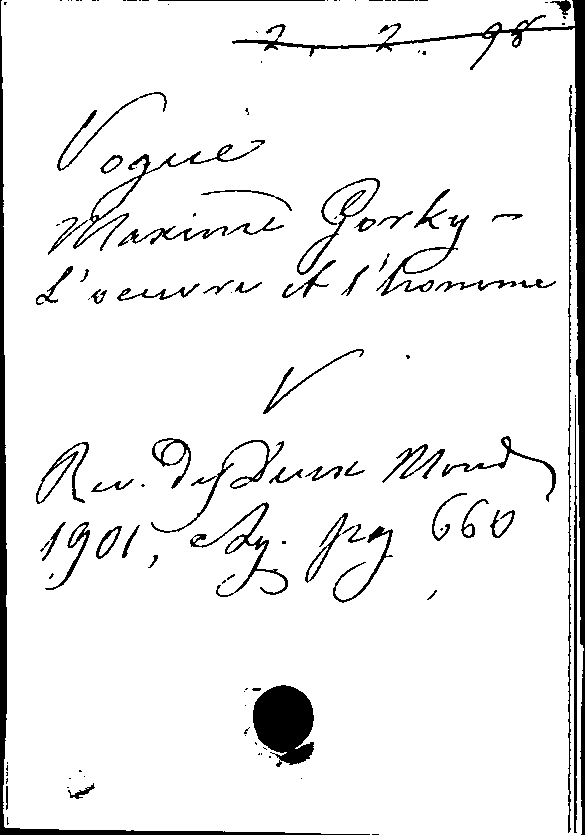 2. 2. 98
Vogué
Maxime Gorky –
L'oeuvre et l'homme
V
Rev. Des Deux Mond
1901, Ag. pg 660